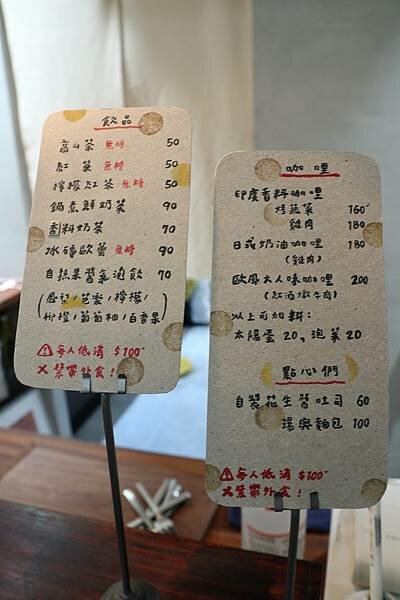 飲品
高山茶 無糖 50
紅茶 無糖 50
檸檬紅茶 無糖 50
鍋煮鮮奶茶 90
香料奶茶 70
冰磚歐蕾 無糖 90
自熬果醬氣泡飲 70
(鳳梨/芒果/檸檬/
柳橙/葡萄柚/百香果)
⚠每人低消 $100-
✗禁帶外食!
咖哩
印度香料咖哩
烤蔬菜 160-
雞肉 180
日式奶油咖哩 180
(雞肉)
歐風大人味咖哩 200
(紅酒燉牛肉)
以上可加料:
太陽蛋20,泡菜20
點心們
自製花生醬吐司 60
湯與麵包 100
⚠每人低消 $100-
✗禁帶外食!